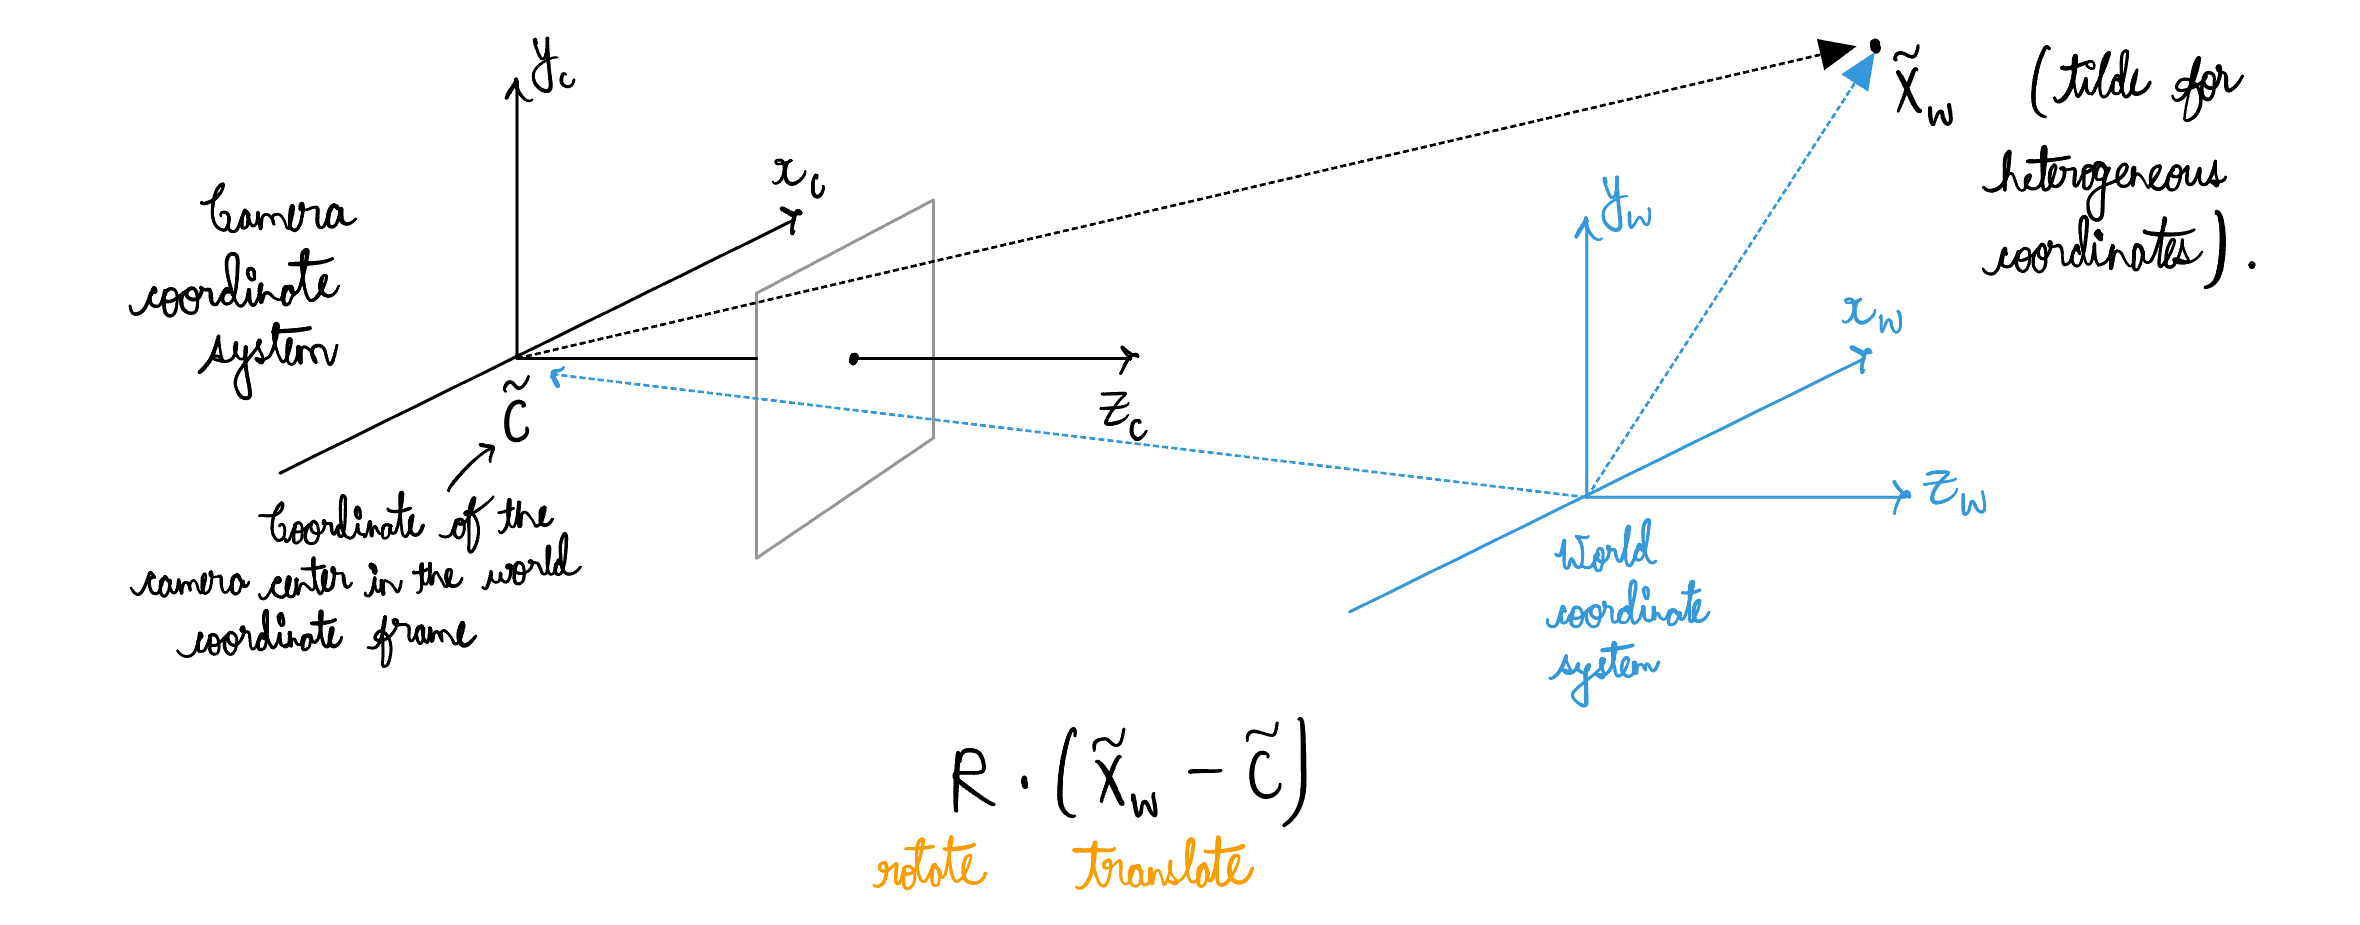 y_c
x_c
Camera
coordinate
system
C̃
z_c
Coordinate of the
camera center in the world
coordinate frame
X̃_w (tilde for
heterogeneous
coordinates).
y_w
x_w
z_w
World
coordinate
system
R · (X̃_w − C̃)
rotate translate